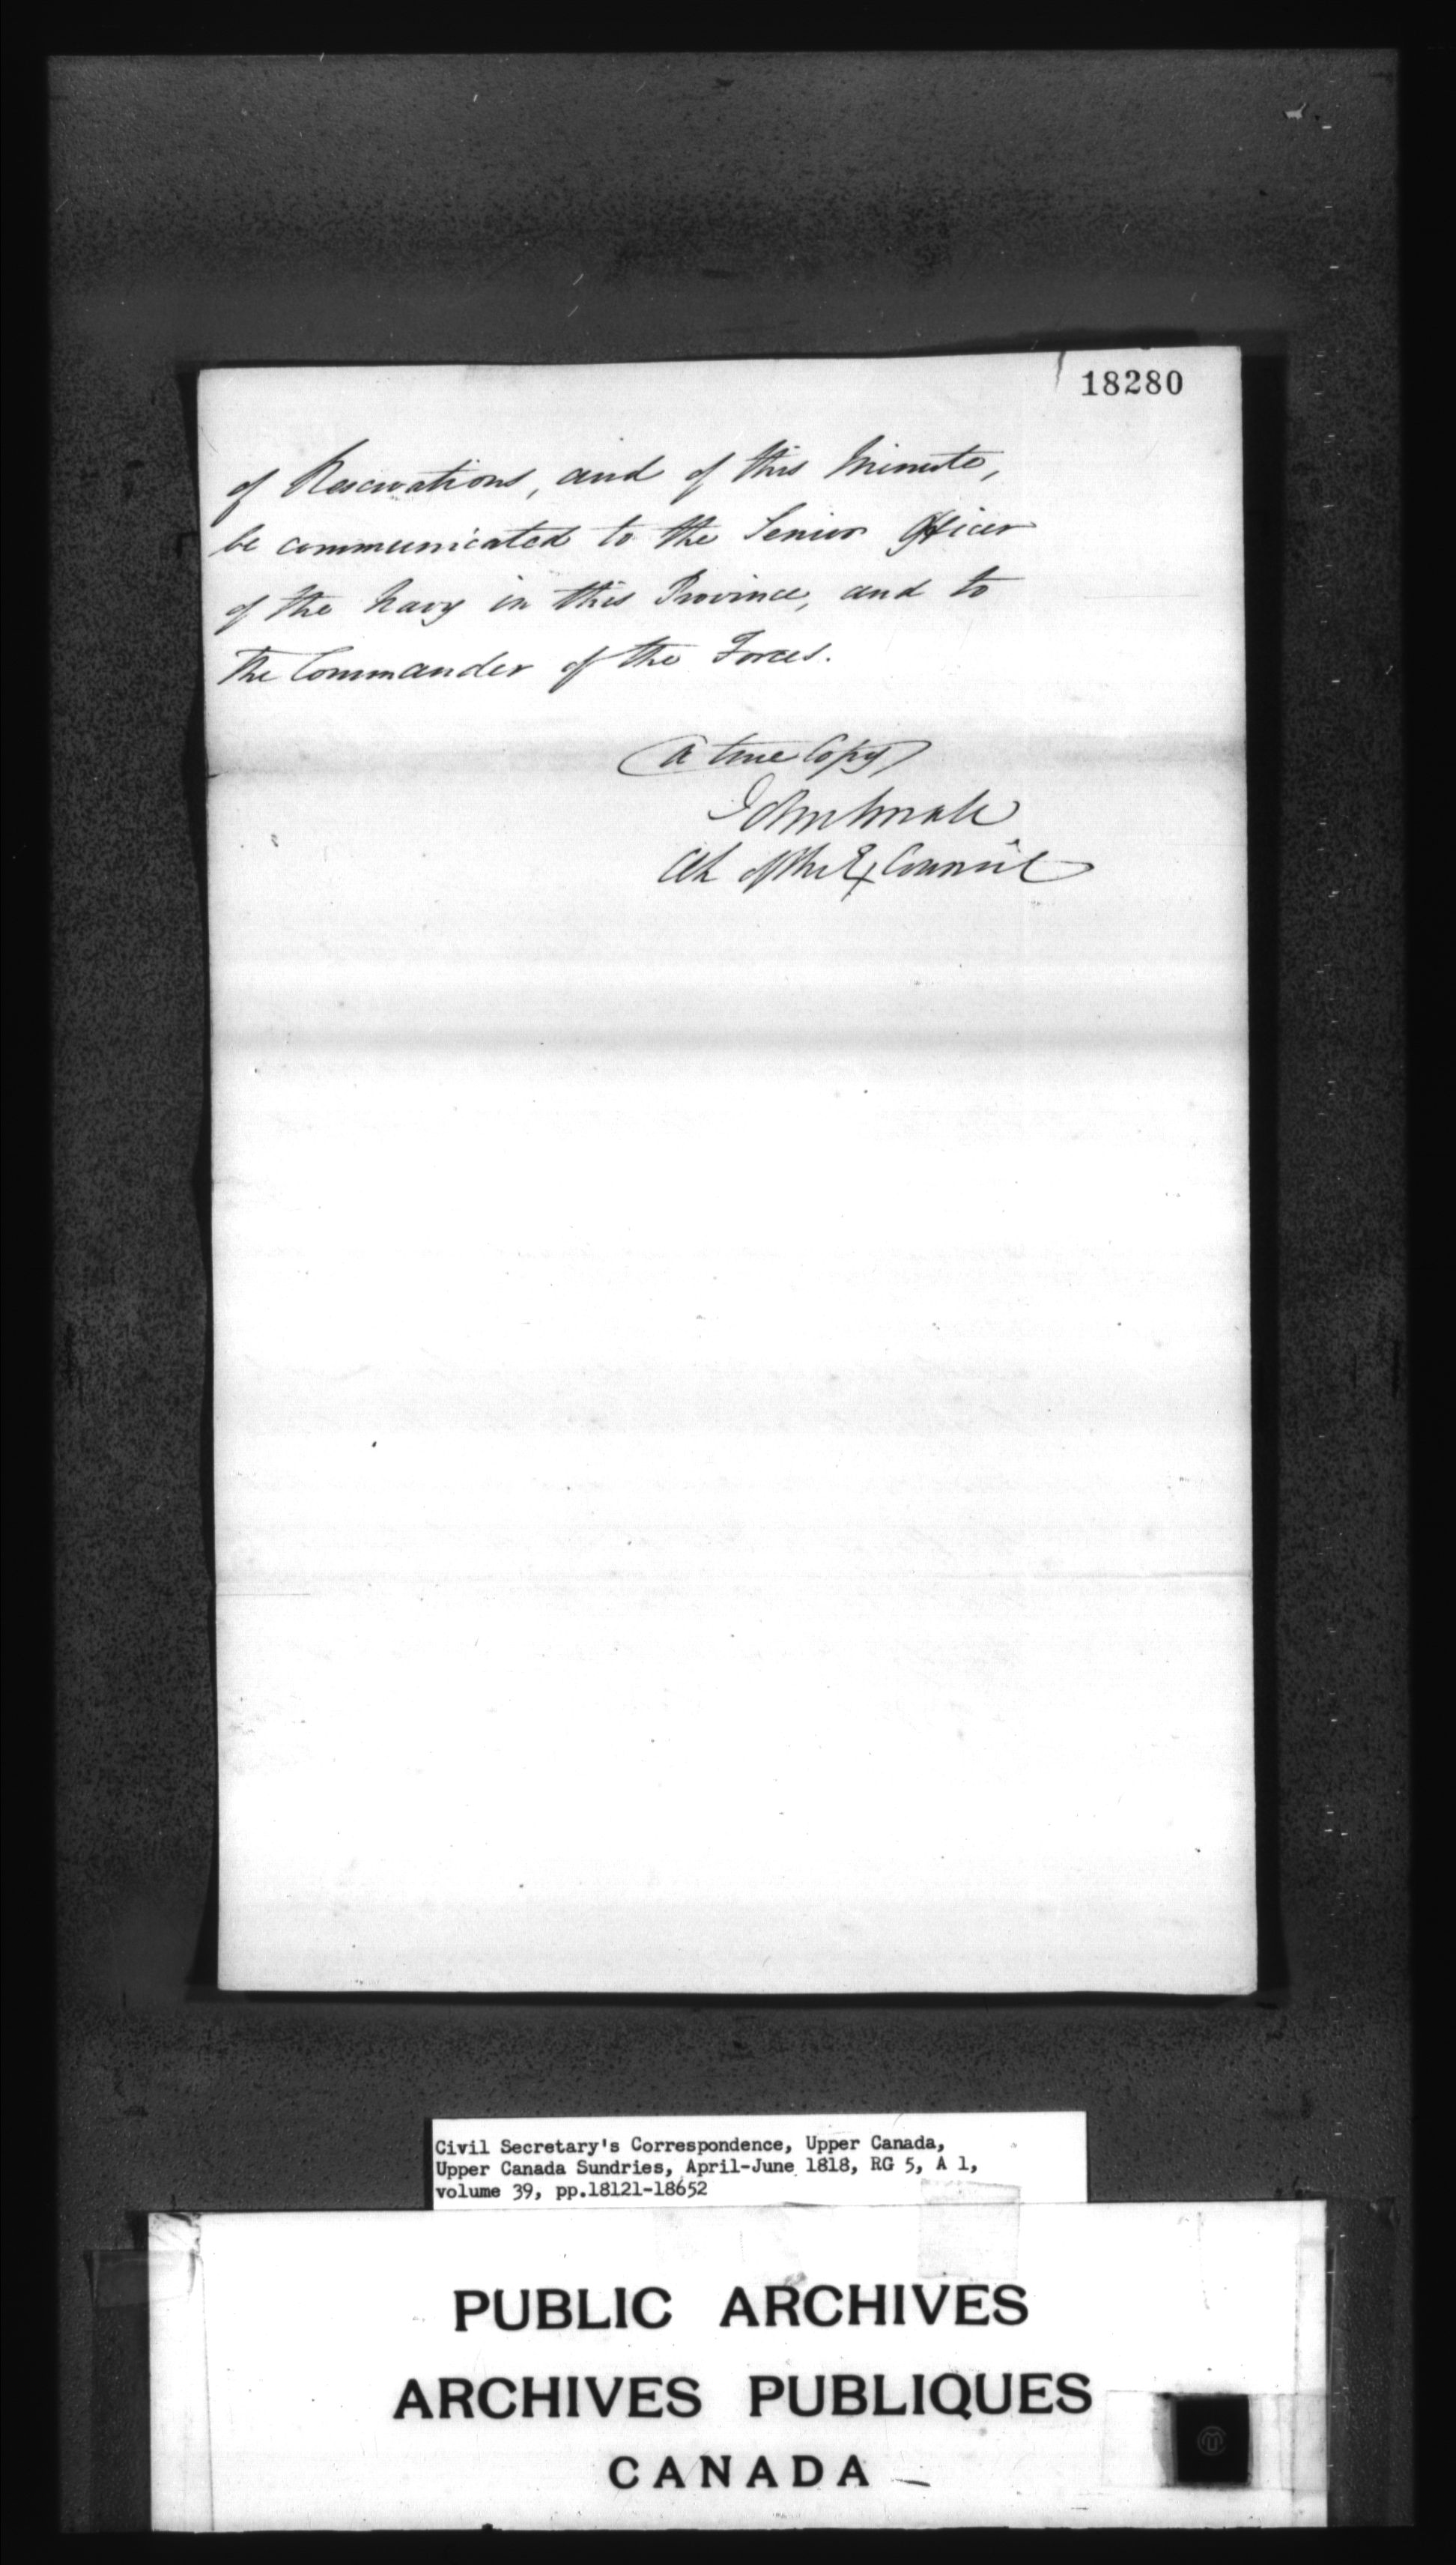 18280
of Reservations, and of this Minute,
be communicated to the Senior Officer
of the Navy in this Province, and to
the Commander of the Forces.
(A true Copy)
John Small
Clk of the Ex Council
Civil Secretary's Correspondence, Upper Canada,
Upper Canada Sundries, April-June 1818, RG 5, A 1,
volume 39, pp.18121-18652
PUBLIC ARCHIVES
ARCHIVES PUBLIQUES
CANADA